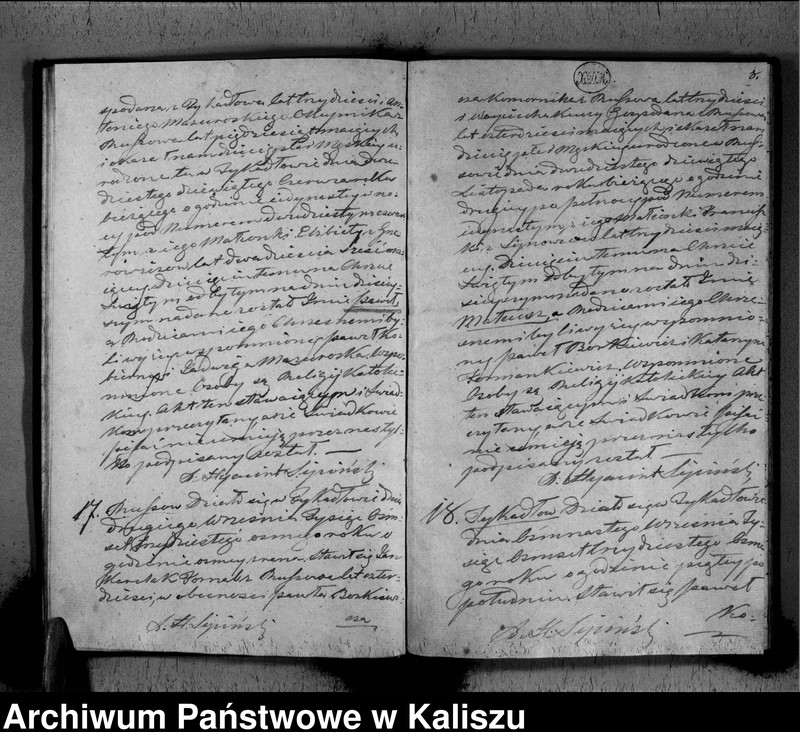 spodarza z Tykadłowa lat trzydzieści, An-
toniego Mazurowskiego Okupnika z
Russowa lat pięćdziesiąt mających
i okazał nam dziecię płci Męskiej u-
rodzone tu w Tykadłowie dnia dwu-
dziestego dziewiątego Czerwca roku
bieżącego o godzinie jedynastej w no-
cy pod Numerem dwudziestym czwar-
tym z jego Małżonki Elżbiety z
lat dwadzieścia sześć ma-
jącej. Dziecięciu temu na Chrzcie
Świętym odbytym na dniu dzisiej-
szym nadane zostało Imię Paweł,
a Rodzicami jego Chrzestnemi by-
li wyżej wspomniony Paweł
i Jadwiga Mazurowska, wspo-
mnione Osoby są Religij Katolic-
kiej. Akt ten stawającym i Świad-
kom przeczytany a że Świadkowie
pisać nieumieją przez nas tyl-
ko podpisany został. —
X. Hyacint Lipiński
17. Russow Działo się w Tykadłowie dnia
drugiego Września Tysiąc Ośm-
set trzydziestego ósmego roku o
godzinie ósmej z rana. Stawił się Jan
Marciak Fornal z Russowa lat czter-
dzieści, w obecności Pawła Borkiewi-
X. H. Lipiński
cza
3.
cza Komornika z Russowa lat trzydzieści
i Wojciecha Kury Gospodarza z Russowa
lat czterdzieści mających i okazał nam
dziecię płci Męskiej urodzone w Rus-
sowie dnia dwudziestego dziewiątego
Listopada roku bieżącego o godzinie
drugiej po północy pod Numerem
jedynastym z jego Małżonki Francisz-
ki z lat trzydzieści mają-
cej. Dziecięciu temu na Chrzcie
Świętym odbytym na dniu dzi-
siejszym nadane zostało Imię
Mateusz, a Rodzicami jego Chrze-
stnemi byli wyżej wspomnio-
ny Paweł Borkiewicz i Katarzyna
wspomnione
Osoby są Religij Katolickiej Akt
ten Stawającym i Świadkom prze-
czytany a że Świadkowie pisać
nie umieją przez nas tylko
podpisany został —
X. Hyacint Lipiński
18. Tykadłow Działo się w Tykadłowie
dnia Ośmnastego Września Ty-
siąc Ośmset trzydziestego ósme-
go roku o godzinie piątej po
południu. Stawił się Paweł
Ko-
X. H. Lipiński
Archiwum Państwowe w Kaliszu